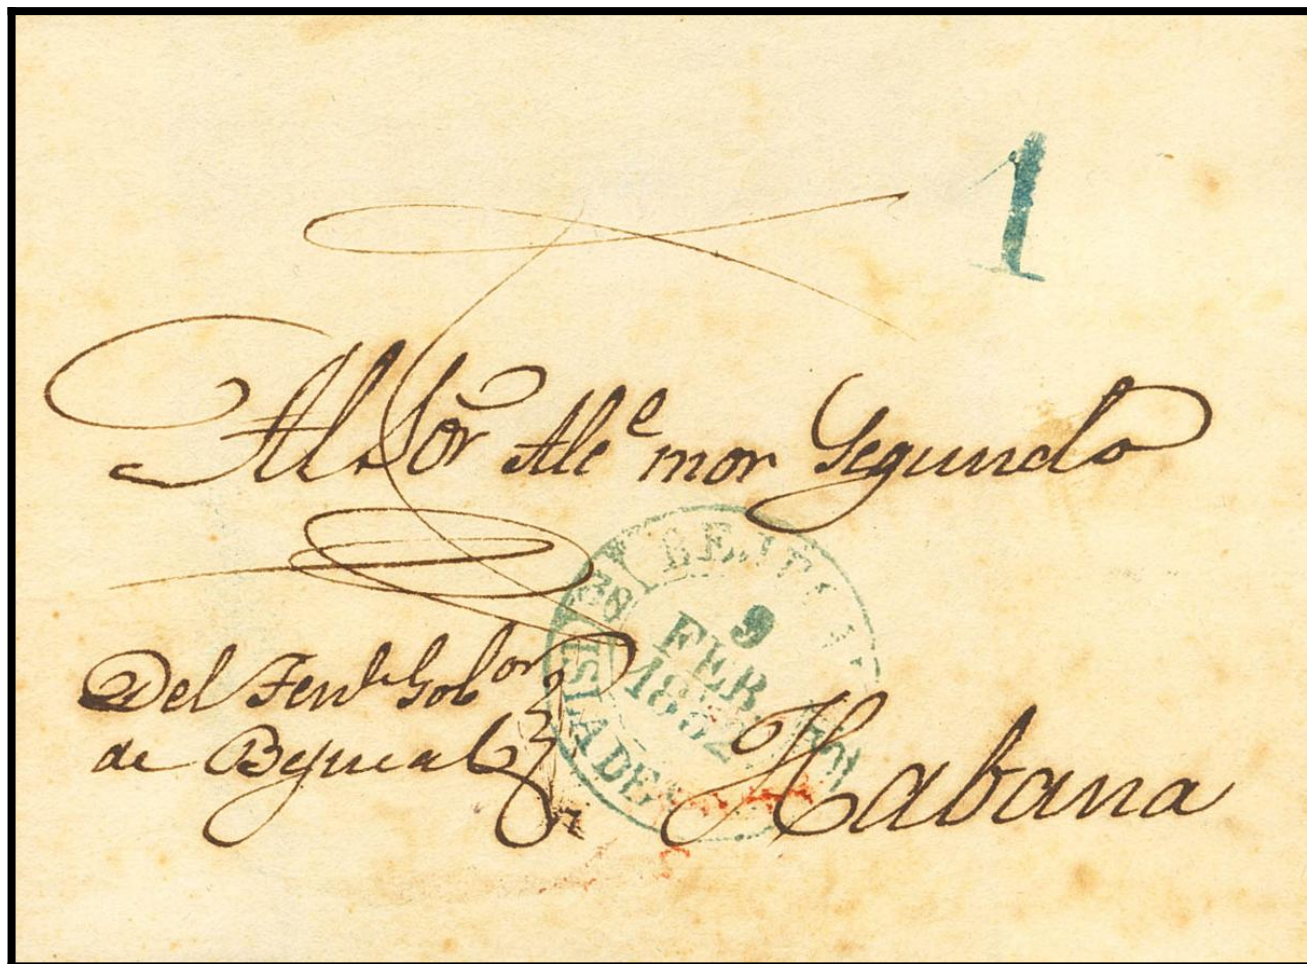 1
Al Sor Alce mor Segundo
Del Tente Gobor
de Bejucal
Habana
9
FEB
1852
ISLA DE